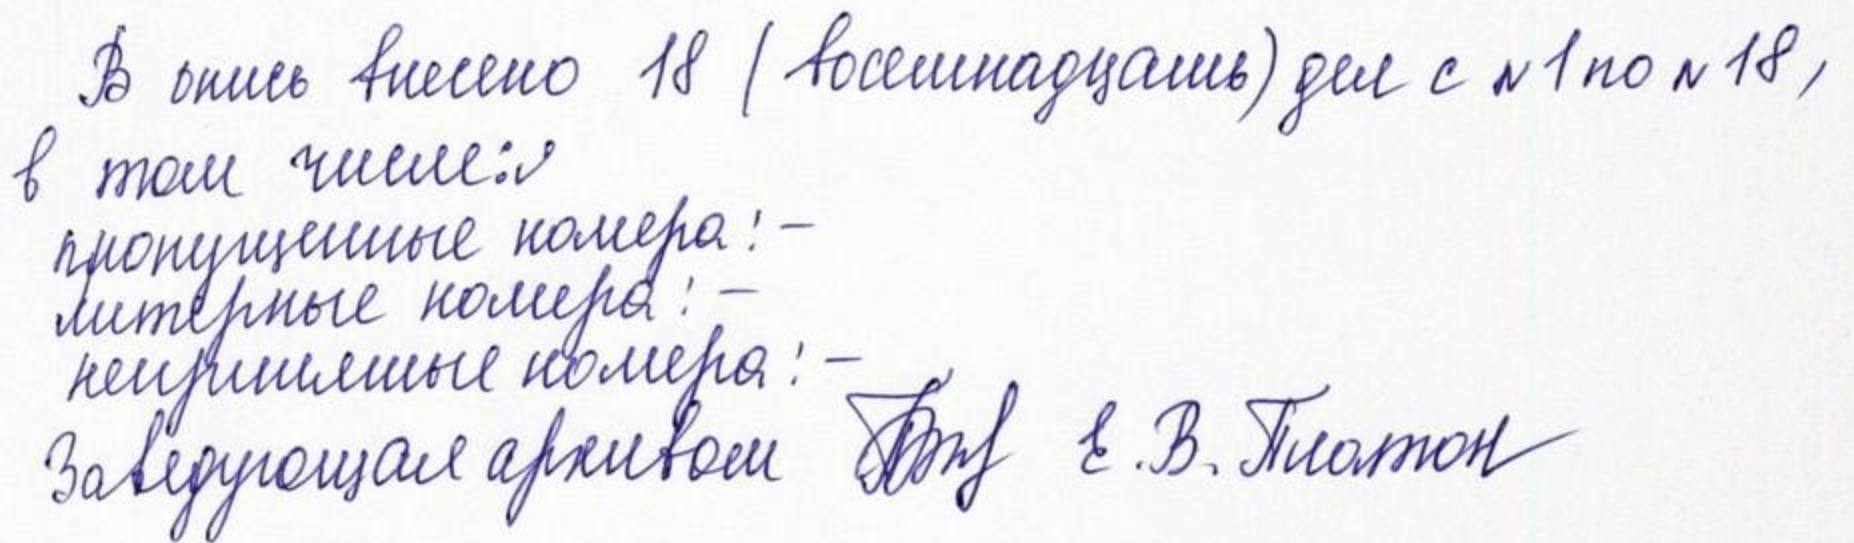 В опись внесено 18 (восемнадцать) дел с №1 по №18,
в том числе:
пропущенные номера: –
литерные номера: –
непринятые номера: –
Заведующая архивом Е.В. Платон